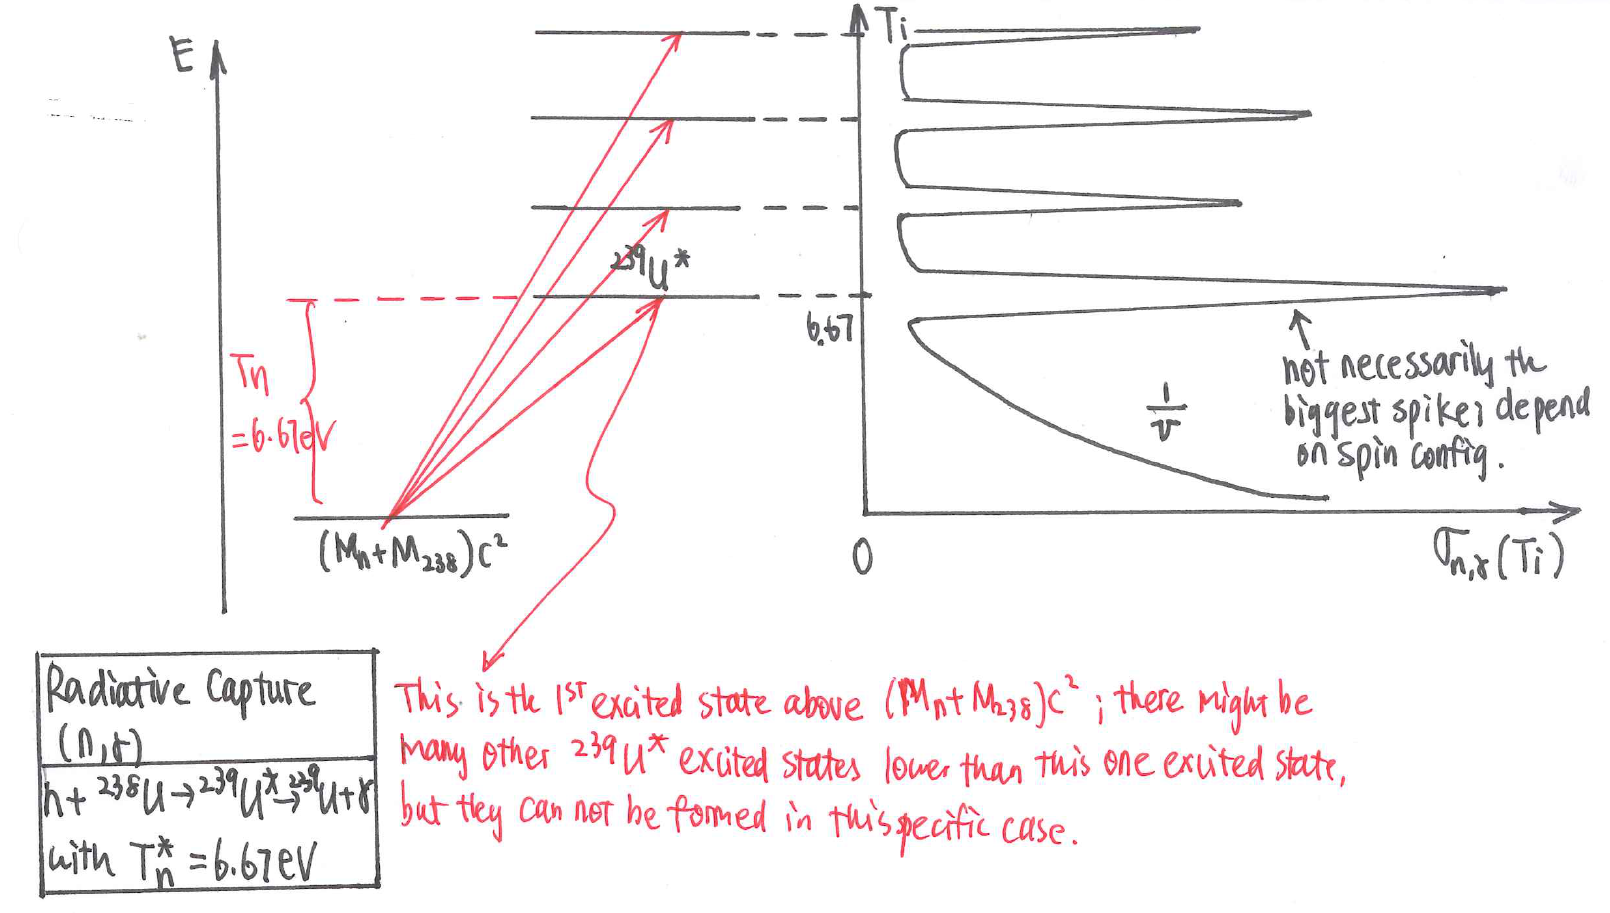 E
Ti
²³⁹U*
6.67
Tn
=6.67eV
(Mn+M₂₃₈)C²
1/v
not necessarily the
biggest spike; depend
on spin config.
0
σn,γ(Ti)
Radiative Capture
(n,γ)
n+ ²³⁸U→²³⁹U*→²³⁹U+γ
with Tn* =6.67eV
This is the 1ST excited state above (Mn+M₂₃₈)C² ; there might be
many other ²³⁹U* excited states lower than this one excited state,
but they can not be formed in this specific case.